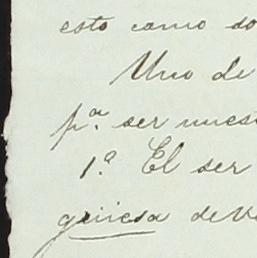 esto como so
Uno de
p.ª ser nuest
1.ª El ser
güiesa dev